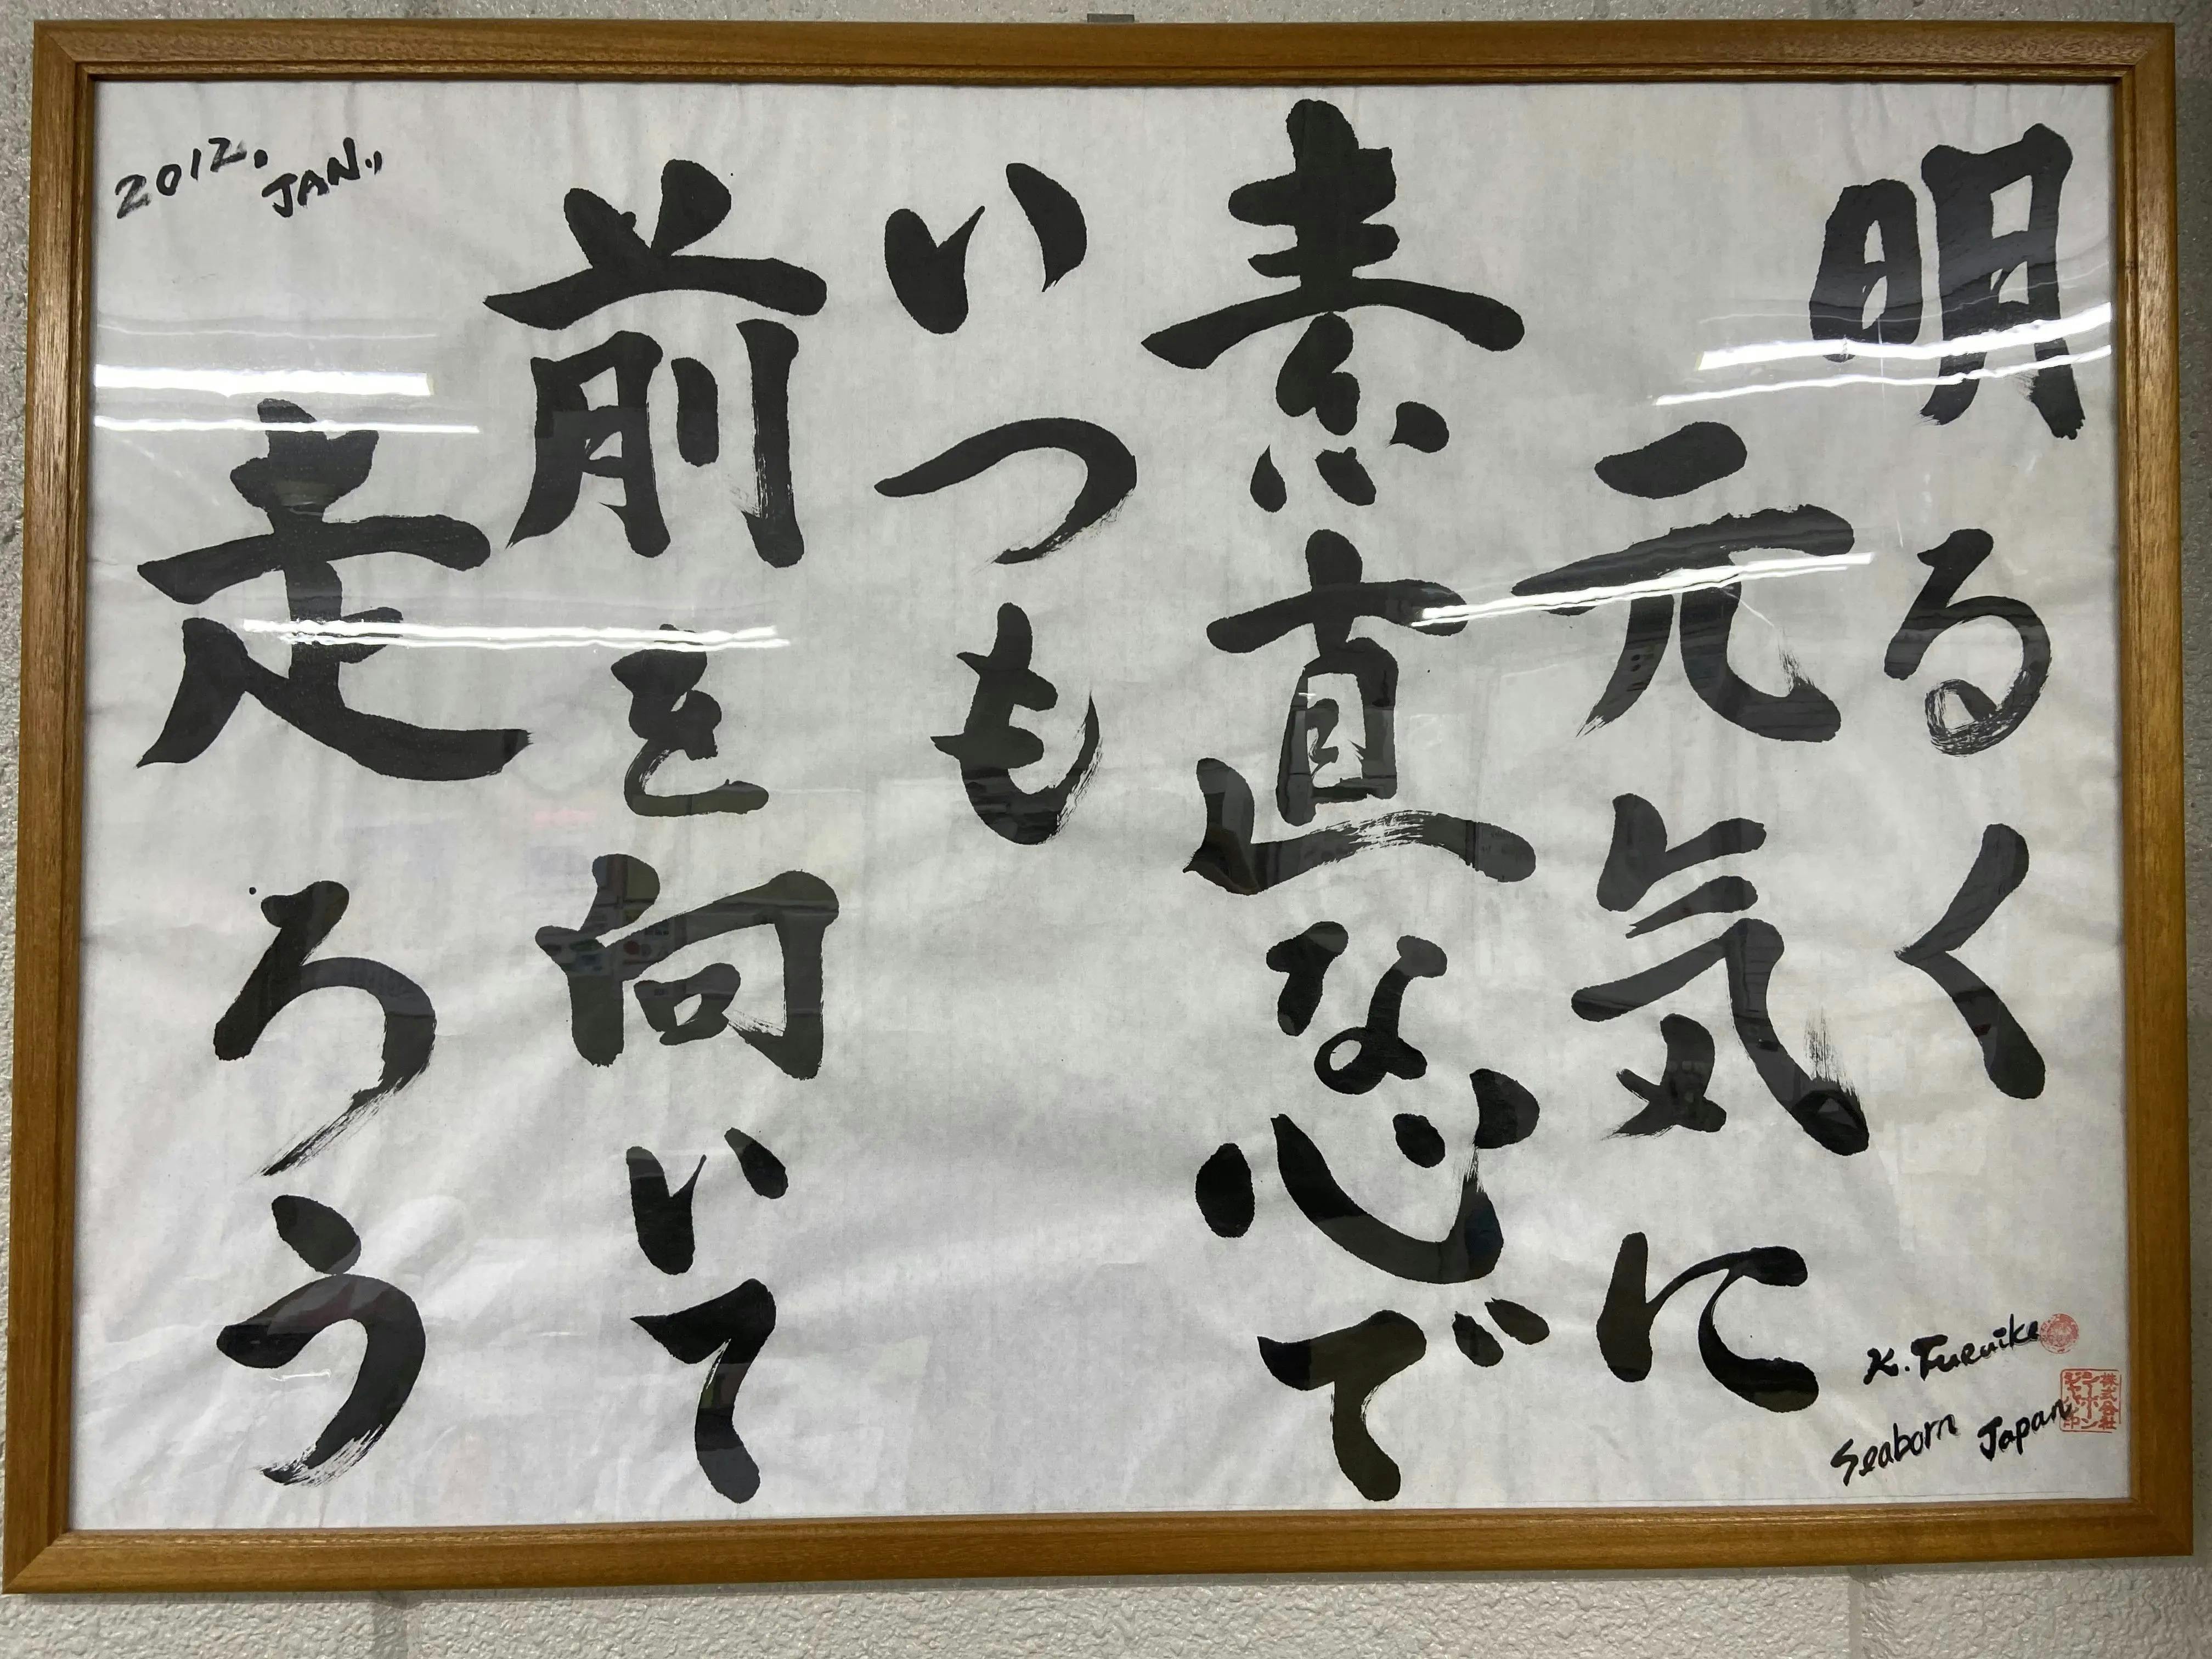 明るく
元気に
素直な心で
いつも
前を向いて
走ろう
2012. JAN.
K. Furuike
Seaborn Japan
株式会社
シーボン
ジャパン印